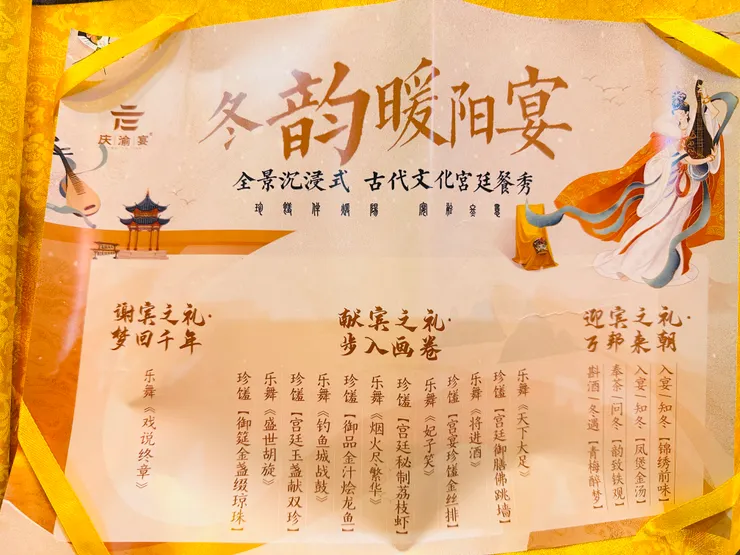 庆渝宴
冬韵暖阳宴
全景沉浸式 古代文化宫廷餐秀
迎宾之礼·
万邦来朝
入宴|知冬【锦绣前味】
入宴|知冬【凤煲金汤】
奉茶|问冬【韵致铁观】
斟酒|冬遇【青梅醉梦】
献宾之礼·
步入画卷
乐舞《天下大足》
珍馐【宫廷御膳佛跳墙】
乐舞《将进酒》
珍馐【宫宴珍馐金丝排】
乐舞《妃子笑》
珍馐【宫廷秘制荔枝虾】
乐舞《烟火尽繁华》
珍馐【御品金汁烩龙鱼】
乐舞《钓鱼城战鼓》
珍馐【宫廷玉盏献双珍】
乐舞《盛世胡旋》
珍馐【御筵金盏缀琼珠】
谢宾之礼·
梦回千年
乐舞《戏说终章》